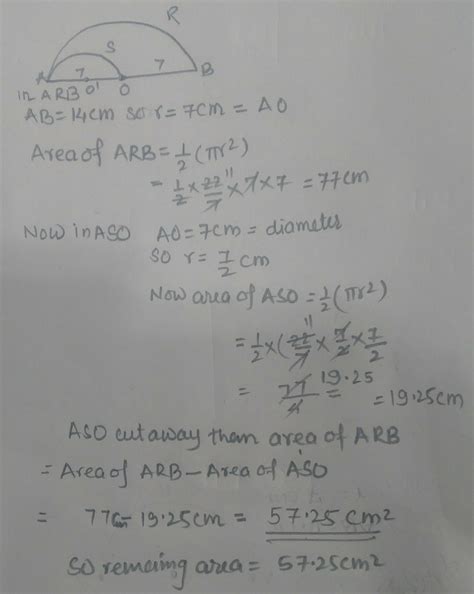 R
S
7 7
A O' O B
in ARB
AB = 14cm so r = 7cm = AO
Area of ARB = 1/2 (πr²)
= 1/2 × 22/7 11 × 7 × 7 = 77cm
Now in ASO AO = 7cm = diameter
so r = 7/2 cm
Now area of ASO = 1/2 (πr²)
= 1/2 × (22/7 11 × 7/2 × 7/2
= 77/4 19.25 = = 19.25cm
ASO cut away than area of ARB
= Area of ARB – Area of ASO
= 77cm – 19.25cm = 57.25 cm²
so remaing area = 57.25cm²